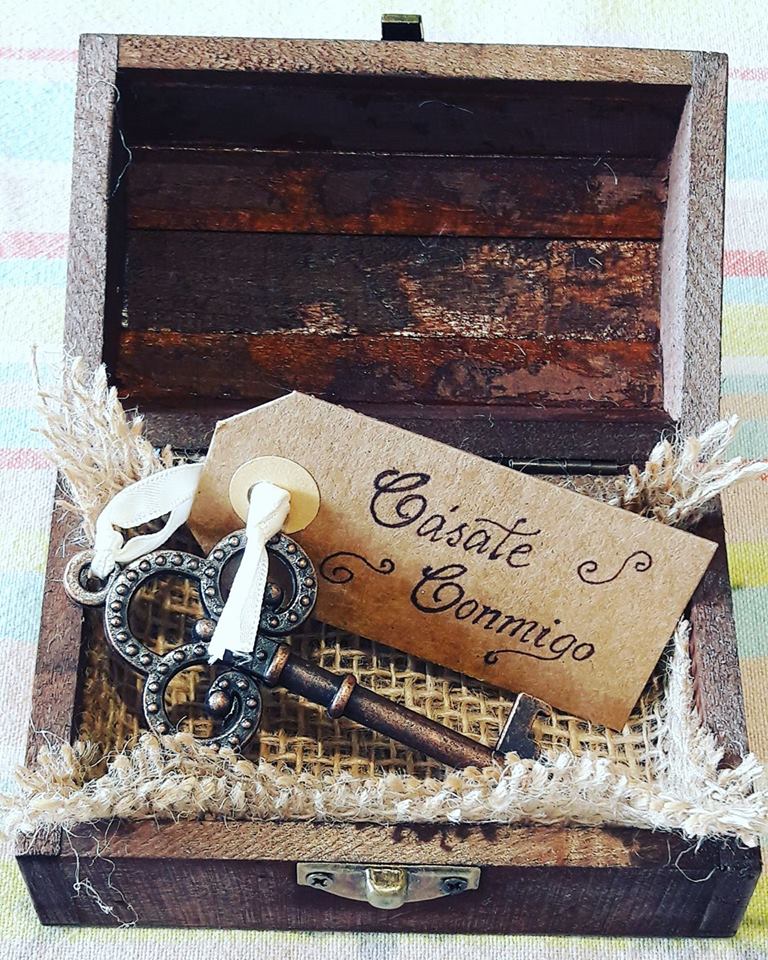 Cásate
Conmigo